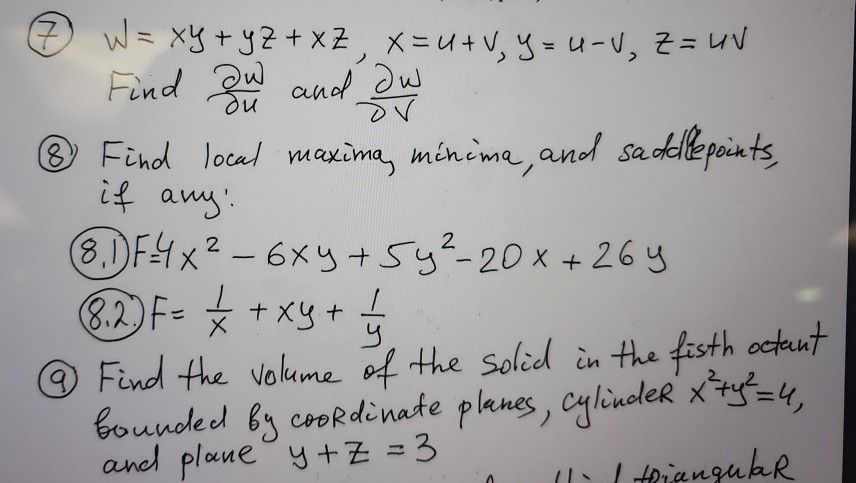 ⑦ W = xy + yz + xz, x = u+v, y = u-v, z = uv
Find ∂w/∂u and ∂w/∂v
⑧ Find local maxima, minima, and saddlepoints,
if any:
8.1 F=4x² - 6xy + 5y² - 20x + 26y
8.2. F= 1/x + xy + 1/y
⑨ Find the volume of the solid in the fisth octant
bounded by coordinate planes, cylinder x²+y²=4,
and plane y+z = 3
triangular